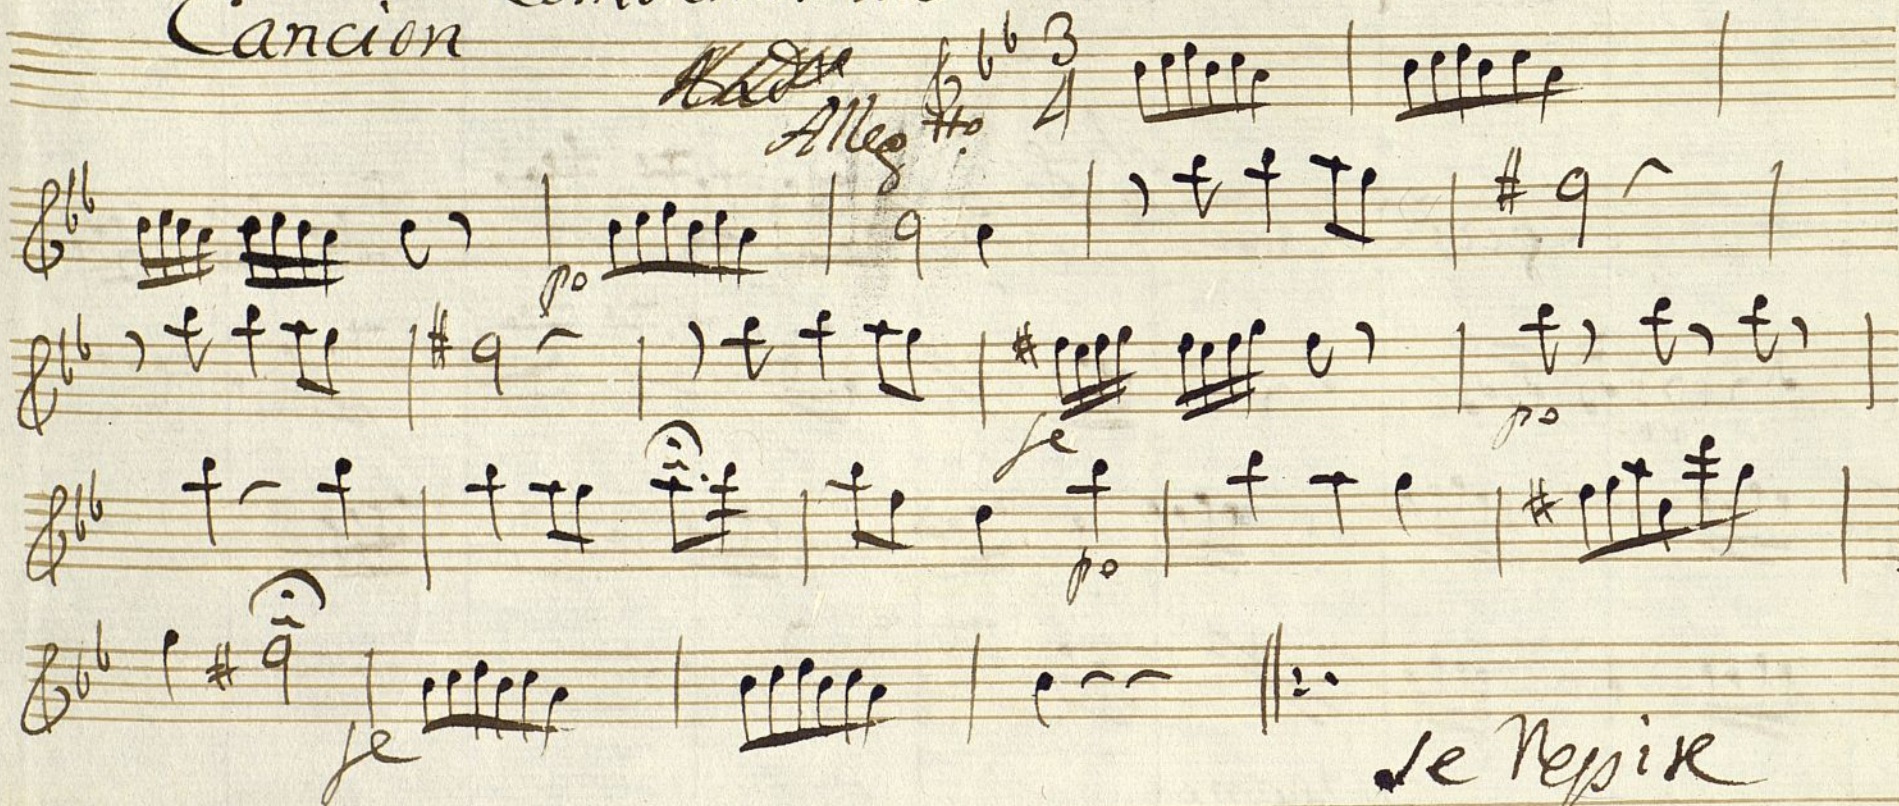 Cancion
3
4
Allegtto.
po
fe
po
po
fe
se Repite